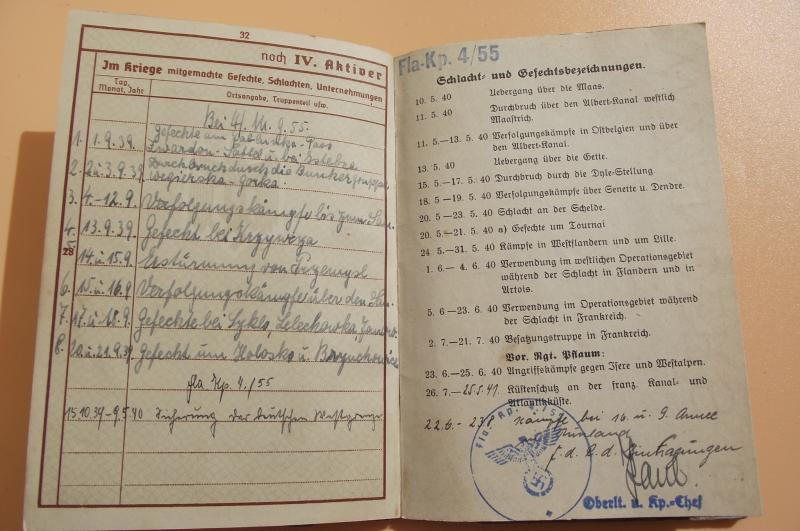 32
noch IV. Aktiver
Im Kriege mitgemachte Gefechte, Schlachten, Unternehmungen
Tag, Monat, Jahr
Ortsangabe, Truppenteil usw.
Bei 4/ M. G. 55.
1. 1.9.39. Gefechte am Jablunka-Pass
Zwardon-Sattel u. bei
2. 2. u. 3.9.39. Durchbruch durch die Bunkergruppe
Wegierska-Gorka.
3. 4.-12.9. Verfolgungskämpfe bis zum San.
4. 13.9.39. Gefecht bei Krzywcza
5. 14. u. 15.9. Erstürmung von Przemysl
6. 15. u. 16.9. Verfolgungskämpfe über den San.
7. 17. u. 18.9. Gefechte bei Lelechowka,
8. 20. u. 21.9.39. Gefecht um Holosko u. Brzuchowice
Fla Kp. 4./55
15.10.39-9.5.40 Sicherung der deutschen Westgrenze
Fla-Kp. 4/55
Schlacht- und Gefechtsbezeichnungen.
10. 5. 40 Uebergang über die Maas.
11. 5. 40 Durchbruch über den Albert-Kanal westlich
Maastrich.
11. 5.—13. 5. 40 Verfolgungskämpfe in Ostbelgien und über
den Albert-Kanal.
13. 5. 40 Uebergang über die Gette.
15. 5.—17. 5. 40 Durchbruch durch die Dyle-Stellung.
18. 5.—19. 5. 40 Verfolgungskämpfe über Senette u. Dendre.
20. 5.—23. 5. 40 Schlacht an der Schelde.
20. 5.—21. 5. 40 a) Gefechte um Tournai
24 5.—31. 5. 40 Kämpfe in Westflandern und um Lille.
1. 6.— 4. 6. 40 Verwendung im westlichen Operationsgebiet
während der Schlacht in Flandern und in
Artois.
5. 6—23. 6. 40 Verwendung im Operationsgebiet während
der Schlacht in Frankreich.
2. 7.—21. 7. 40 Besatzungstruppe in Frankreich.
Vor. Rgt. Pflaum:
23. 6.—25. 6. 40 Angriffskämpfe gegen Isere und Westalpen.
26. 7.—25.5.41. Küstenschutz an der franz. Kanal- und
Atlantikküste.
22.6.- Kämpfe bei 16. u. 9. Armee
f. d. R. d. Eintragungen
Fla-Kp.
Oberlt. u. Kp.-Chef